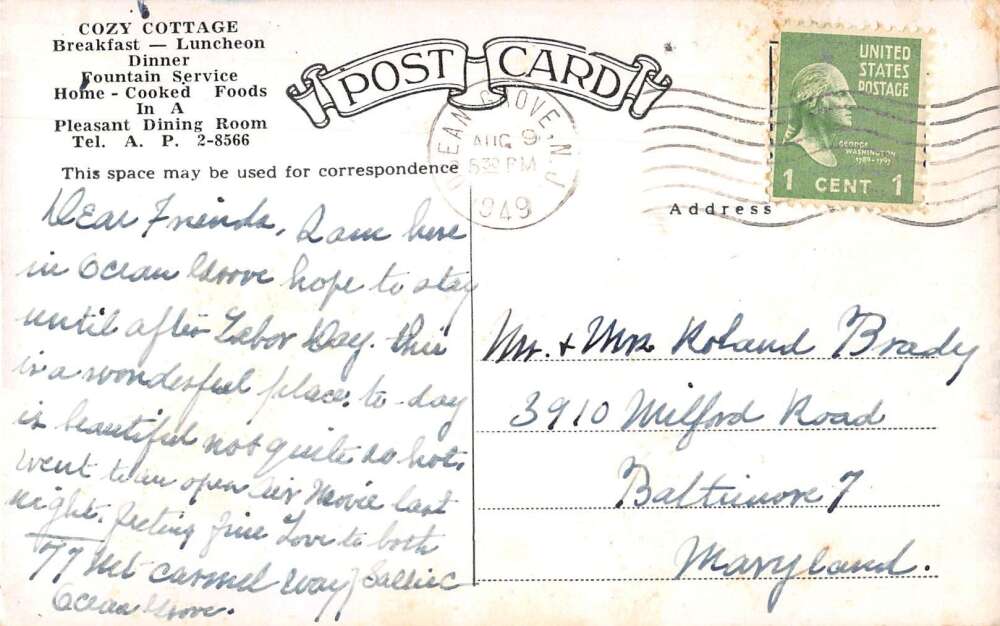 COZY COTTAGE
Breakfast — Luncheon
Dinner
Fountain Service
Home - Cooked Foods
In A
Pleasant Dining Room
Tel. A. P. 2-8566
POST CARD
OCEAN GROVE, N.J.
AUG 9
5 30 PM
1949
UNITED
STATES
POSTAGE
GEORGE
WASHINGTON
1789-1797
1 CENT 1
This space may be used for correspondence
Address
Dear Friends, I am here
in Ocean Grove hope to stay
until after Labor Day. this
is a wonderful place. to-day
is beautiful not quite so hot.
went to an open air Movie last
night. feeling fine Love to both
77 Mt Carmel Way Sallie C
Ocean Grove.
Mr. + Mrs Roland Brady
3910 Milford Road
Baltimore 7
Maryland.